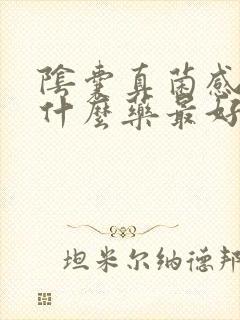 陰囊真菌感
什麼藥最好
坦米尔纳德邦